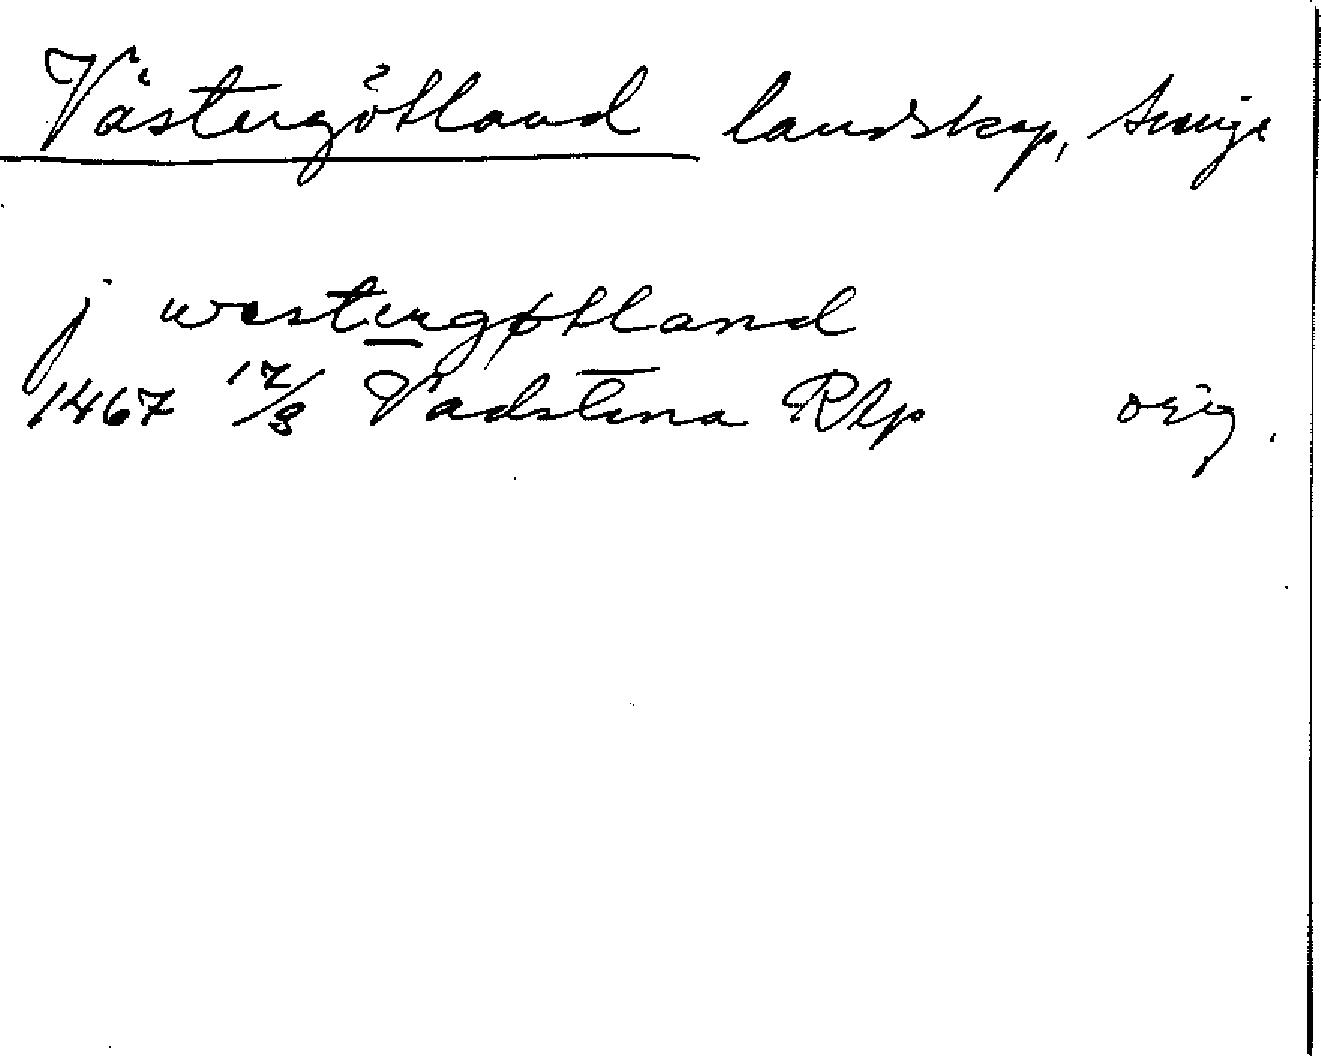 Västergötland landskap, Sverige
j westergøtland
1467 17/8 Vadstena RAp orig.